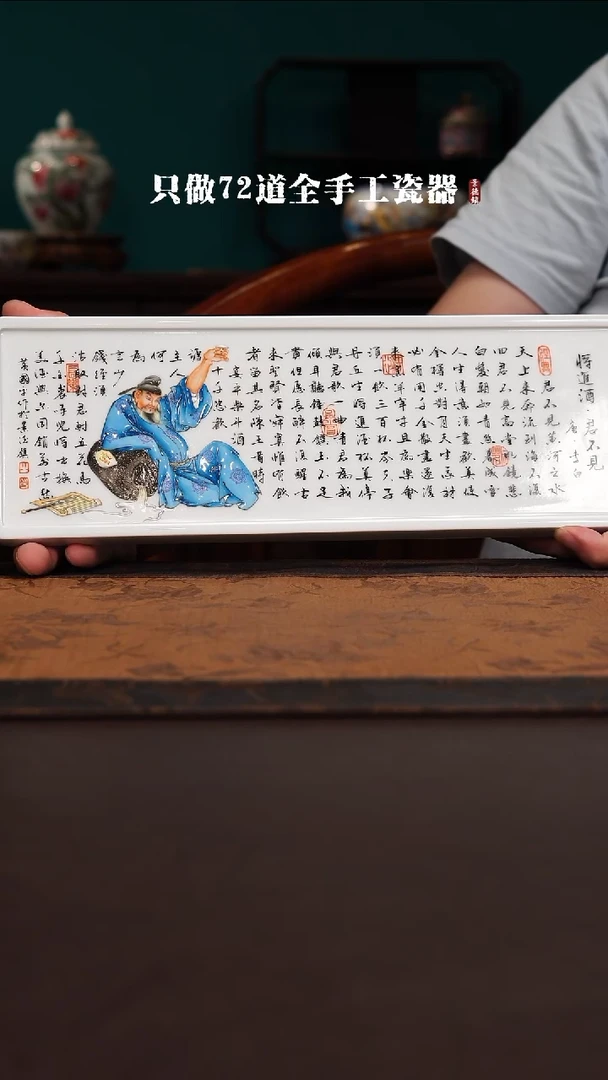 只做72道全手工瓷器
景德鎮
將進酒
唐李白
君不見
君不見黃河之水
天上來奔流到海不復
回君不見高堂明鏡悲
白髮朝如青絲暮成雪
人生得意須盡歡莫使
金樽空對月天生我材
必有用千金散盡還復
來烹羊宰牛且為樂會
須一飲三百杯岑夫子
丹丘生將進酒杯莫停
與君歌一曲請君為我
傾耳聽鐘鼓饌玉不足
貴但願長醉不復醒古
來聖賢皆寂寞惟有飲
者留其名陳王昔時
宴平樂斗酒
十千恣歡
謔
主人
何
為
言少
錢徑須
沽取對君酌五花馬
千金裘呼兒將出換
美酒與爾同銷萬古愁
作於景德鎮